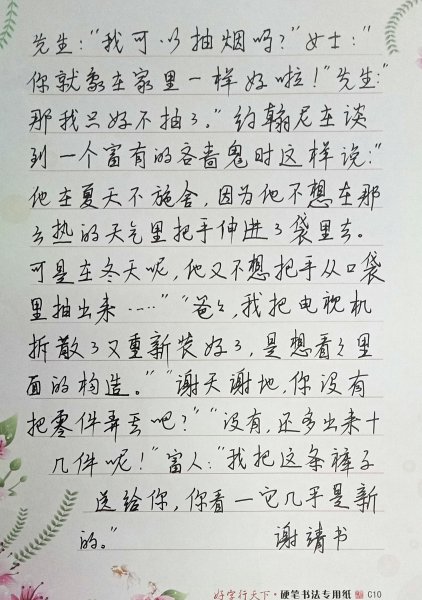 先生："我可以抽烟吗？"女士："
你就象在家里一样好啦！"先生："
那我只好不抽了。"约翰尼在谈
到一个富有的吝啬鬼时这样说："
他在夏天不施舍，因为他不想在那
么热的天气里把手伸进了袋里去。
可是在冬天呢，他又不想把手从口袋
里抽出来……""爸々，我把电视机
拆散了又重新装好了，是想看々里
面的构造。""谢天谢地，你没有
把零件弄丢吧？""没有，还多出来十
几件呢！"富人："我把这条裤子
送给你，你看一它几乎是新
的。" 谢靖书
好字行天下·硬笔书法专用纸 C10